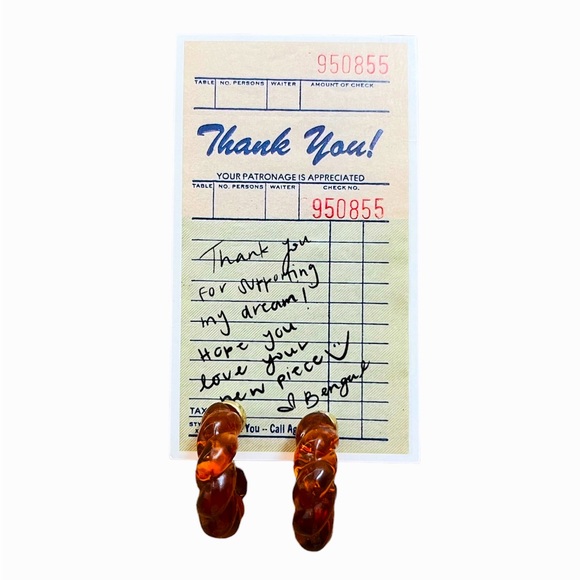 950855
TABLE NO. PERSONS WAITER AMOUNT OF CHECK
Thank You!
YOUR PATRONAGE IS APPRECIATED
TABLE NO. PERSONS WAITER CHECK NO.
950855
Thank you
for supporting
my dream!
Hope you
love your
new piece
TAX
You -- Call Ag